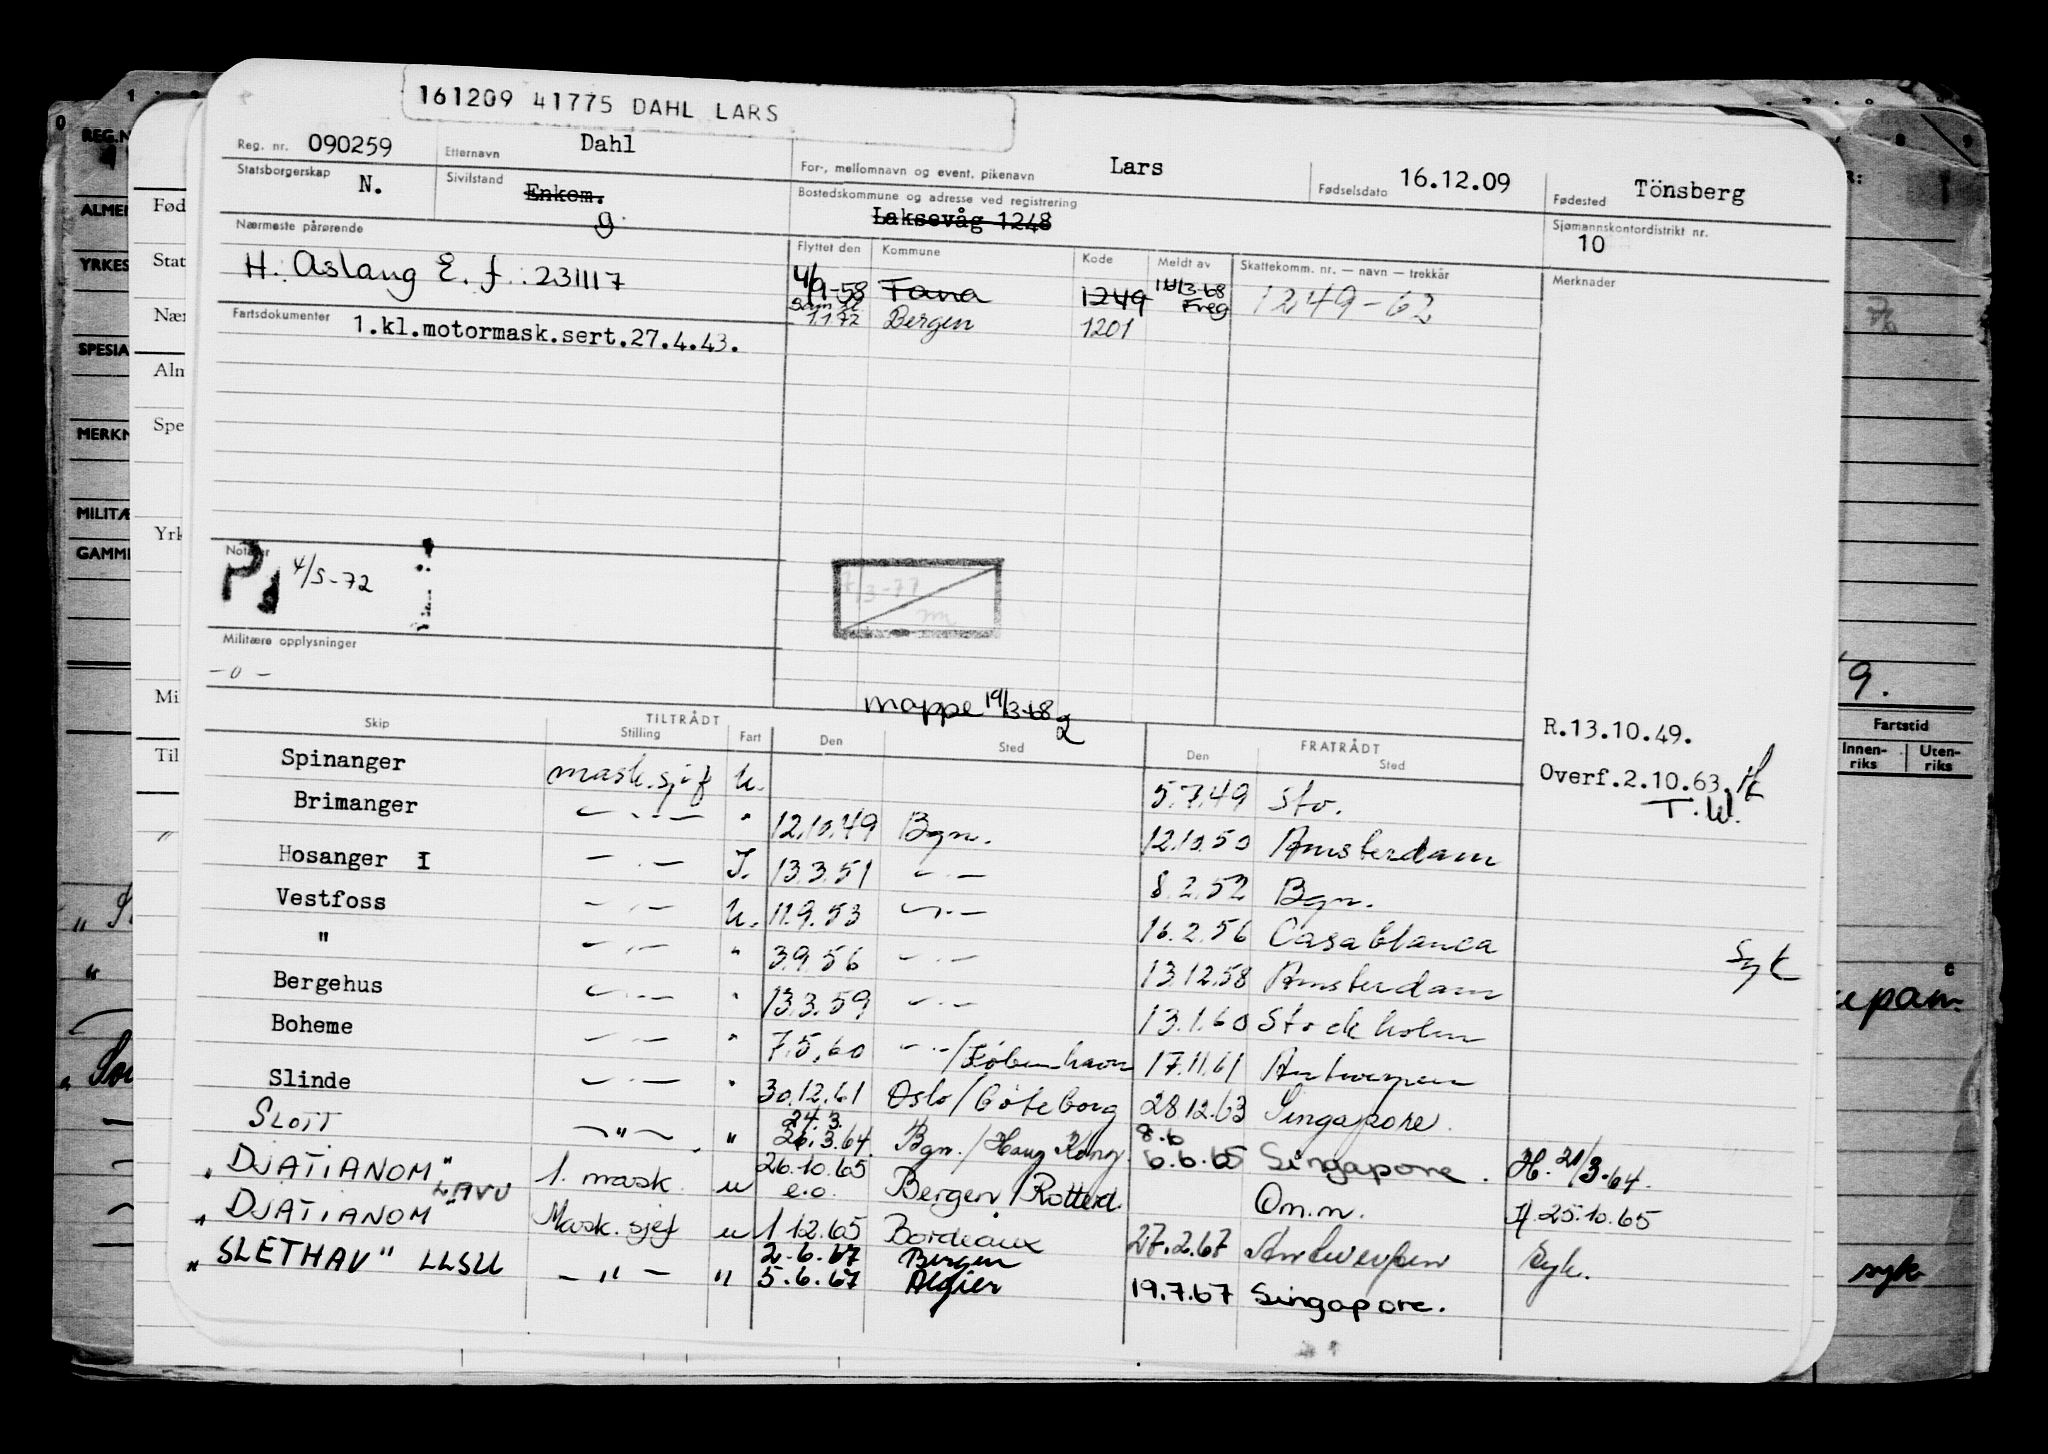 161209 41775 DAHL LARS
Reg. nr. 090259 Etternavn Dahl For-, mellomnavn og event. pikenavn Lars Fødselsdato 16.12.09 Fødested Tönsberg
Statsborgerskap N. Sivilstand Enkem. g Bostedskommune og adresse ved registrering Laksevåg 1248 Sjømannskontordistrikt nr. 10
Nærmeste pårørende Flyttet den Kommune Kode Meldt av Skattekomm. nr. — navn — trekkår Merknader
H. Aslaug E. f. 231117 4/9-58 Fana 1249 Freg 1249-62
1.1.72 Bergen 1201
Fartsdokumenter 1.kl.motormask.sert.27.4.43.
Notater
4/5-72
7/3-77
Militære opplysninger
-0-
mappe 19/3-68
Skip TILTRÅDT Stilling Fart Den Sted FRATRÅDT Den Sted
R.13.10.49.
Overf.2.10.63.
T.W.
Spinanger mask.sjef U. 5.7.49 Sto.
Brimanger — " — " 12.10.49 Bgn. 12.10.50 Amsterdam
Hosanger I — " — I. 13.3.51 — " — 8.2.52 Bgn.
Vestfoss — " — U. 11.9.53 — " — 16.2.56 Casablanca syk
" — " — " 3.9.56 — " — 13.12.58 Amsterdam
Bergehus — " — " 13.3.59 — " — 13.1.60 Stockholm
Boheme — " — " 7.5.60 — " —/København 17.11.61 Antwerpen
Slinde — " — " 30.12.61 Oslo/Göteborg 28.12.63 Singapore.
24.3. 8.6
SLOTT — " — " 26.3.64. Bgn./Hong Kong. 6.6.65 Singapore. H. 21/3.64.
26.10.65
"DJATIANOM" LAVU 1. mask. u e.o. Bergen/Rotterd. Om.m. H. 25.10.65
"DJATIANOM" Mask.sjef u 1.12.65 Bordeaux 27.2.67 Antwerpen syk.
2.6.67 Bergen
"SLETHAV" LLSU — " — " 5.6.67 Algier 19.7.67 Singapore.
REG.N
ALMEN
YRKES
SPESIA
MERKN
MILITÆ
GAMME
Fød
Stat
Nær
Alm
Spe
Yrk
Mi
Til
9.
Fartstid
Innen-riks Uten-riks
syk